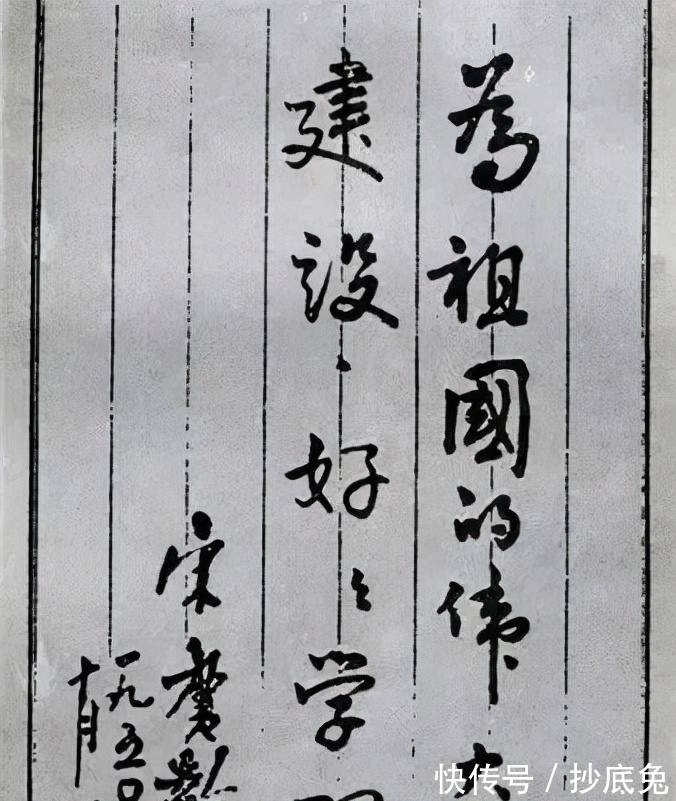 為祖國的偉大
建設、好好学習
宋慶齡
一九五〇
十月
快传号/抄底兔